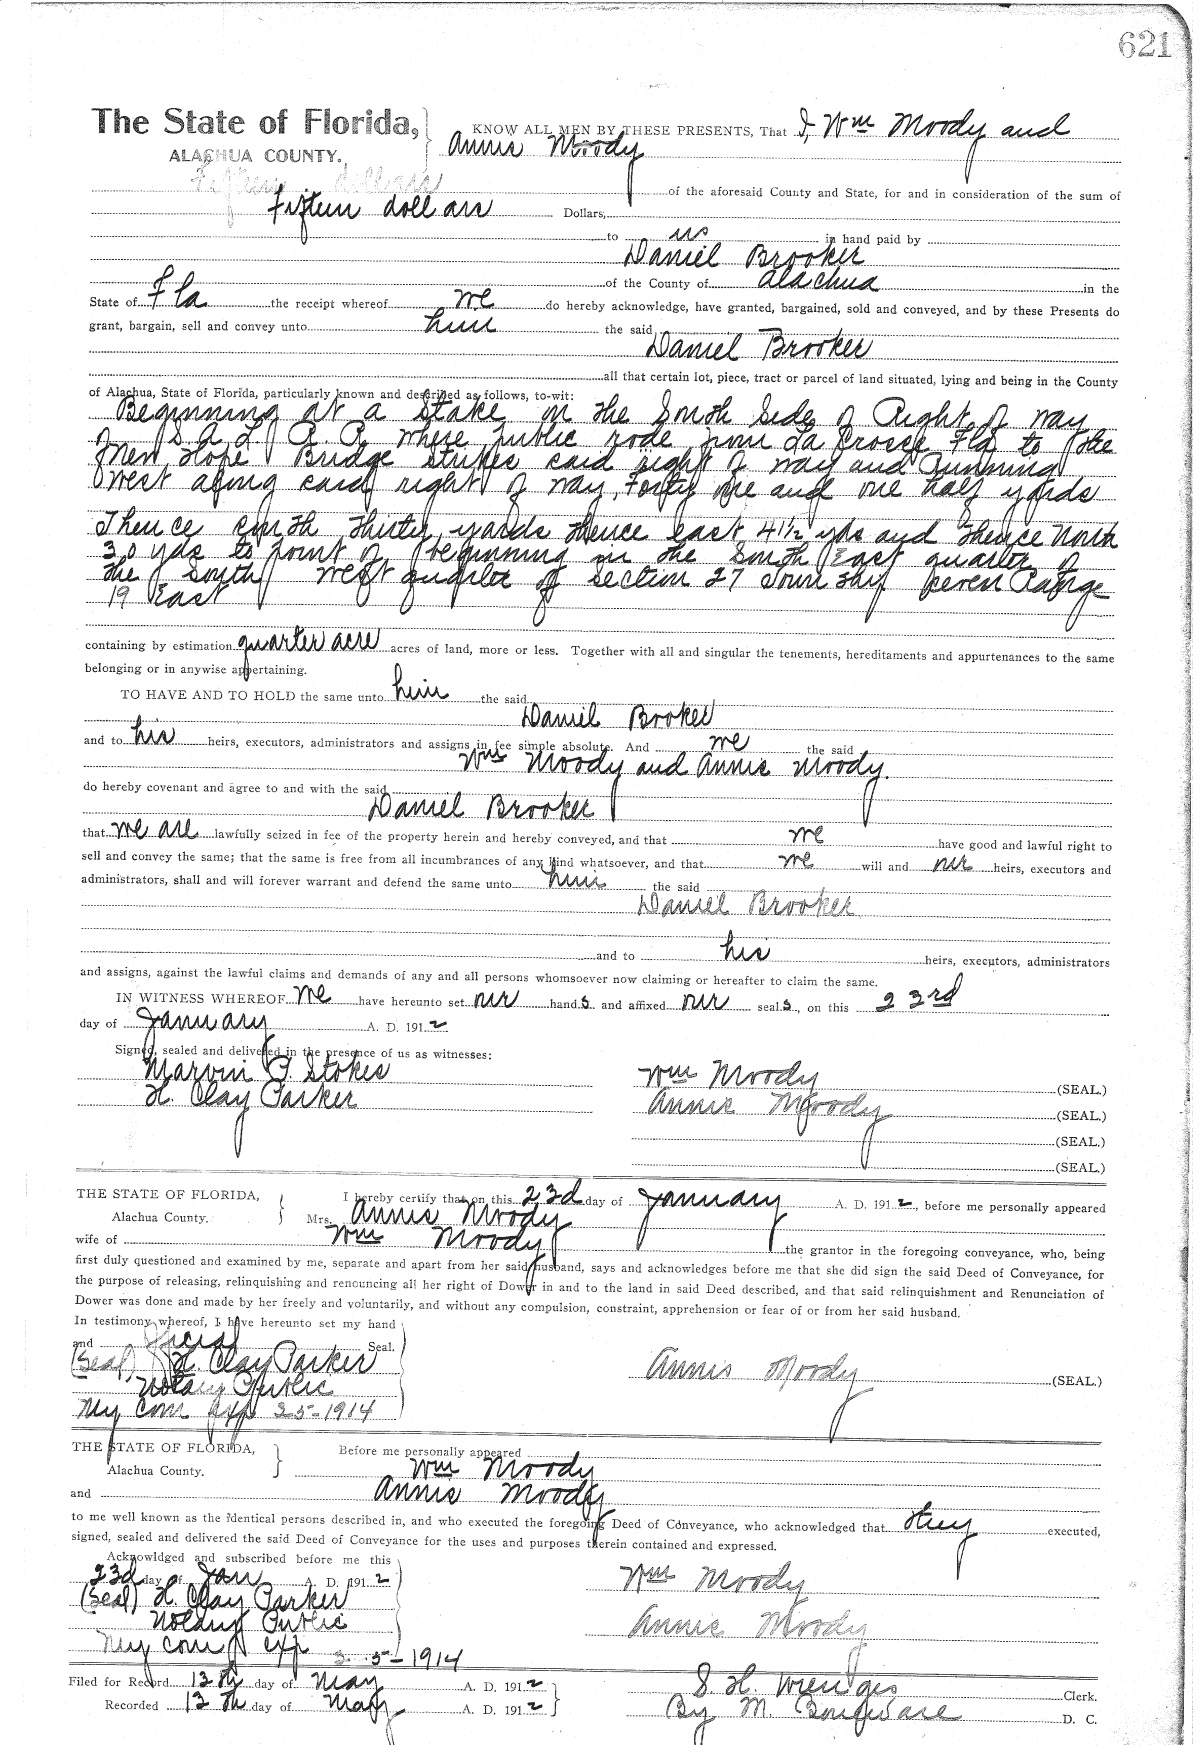 621
The State of Florida, KNOW ALL MEN BY THESE PRESENTS, That I, Wm Moody and
ALACHUA COUNTY. Annis Moody
Fifteen dollars
of the aforesaid County and State, for and in consideration of the sum of
Fifteen dollars Dollars,
to us in hand paid by
Daniel Brooker
of the County of Alachua in the
State of Fla the receipt whereof we do hereby acknowledge, have granted, bargained, sold and conveyed, and by these Presents do
grant, bargain, sell and convey unto him the said
Daniel Brooker
all that certain lot, piece, tract or parcel of land situated, lying and being in the County
of Alachua, State of Florida, particularly known and described as follows, to-wit:
Beginning at a Stake on the South Side of Right of way
of S. A. L. R. R. where public rode from La Crosse Fla to the
New Hope Bridge strikes said right of way and Running
West along said right of way, Forty one and one half yards
Thence south thirty yards thence east 41½ yds and thence North
30 yds to point of beginning in the South East quarter of
the South West quarter of section 27 Township seven Range
19 East
containing by estimation quarter acre acres of land, more or less. Together with all and singular the tenements, hereditaments and appurtenances to the same
belonging or in anywise appertaining.
TO HAVE AND TO HOLD the same unto him the said
Daniel Brooker
and to his heirs, executors, administrators and assigns in fee simple absolute. And we the said
Wm Moody and Annis Moody.
do hereby covenant and agree to and with the said
Daniel Brooker
that we are lawfully seized in fee of the property herein and hereby conveyed, and that we have good and lawful right to
sell and convey the same; that the same is free from all incumbrances of any kind whatsoever, and that we will and our heirs, executors and
administrators, shall and will forever warrant and defend the same unto him the said
Daniel Brooker
and to his heirs, executors, administrators
and assigns, against the lawful claims and demands of any and all persons whomsoever now claiming or hereafter to claim the same.
IN WITNESS WHEREOF we have hereunto set our hand s and affixed our seal s, on this 23rd
day of January A. D. 191 2
Signed, sealed and delivered in the presence of us as witnesses:
Marvin F. Stokes Wm Moody (SEAL.)
H. Clay Parker Annis Moody (SEAL.)
(SEAL.)
(SEAL.)
THE STATE OF FLORIDA, I hereby certify that on this 23d day of January A. D. 191 2, before me personally appeared
Alachua County. Mrs. Annis Moody
wife of Wm Moody the grantor in the foregoing conveyance, who, being
first duly questioned and examined by me, separate and apart from her said husband, says and acknowledges before me that she did sign the said Deed of Conveyance, for
the purpose of releasing, relinquishing and renouncing all her right of Dower in and to the land in said Deed described, and that said relinquishment and Renunciation of
Dower was done and made by her freely and voluntarily, and without any compulsion, constraint, apprehension or fear of or from her said husband.
In testimony whereof, I have hereunto set my hand
and official Seal.
(Seal) H. Clay Parker Annis Moody (SEAL.)
Notary Public
My com exp 3-5-1914
THE STATE OF FLORIDA, Before me personally appeared
Alachua County. Wm Moody
and Annis Moody
to me well known as the identical persons described in, and who executed the foregoing Deed of Conveyance, who acknowledged that they executed,
signed, sealed and delivered the said Deed of Conveyance for the uses and purposes therein contained and expressed.
Acknowldged and subscribed before me this
23d day of Jan A. D. 191 2 Wm Moody
(Seal) H. Clay Parker
Notary Public Annis Moody
My com exp 3-5-1914
Filed for Record 13th day of May A. D. 191 2 S. H. Wienges Clerk.
Recorded 13th day of May A. D. 191 2 By M. D. C.